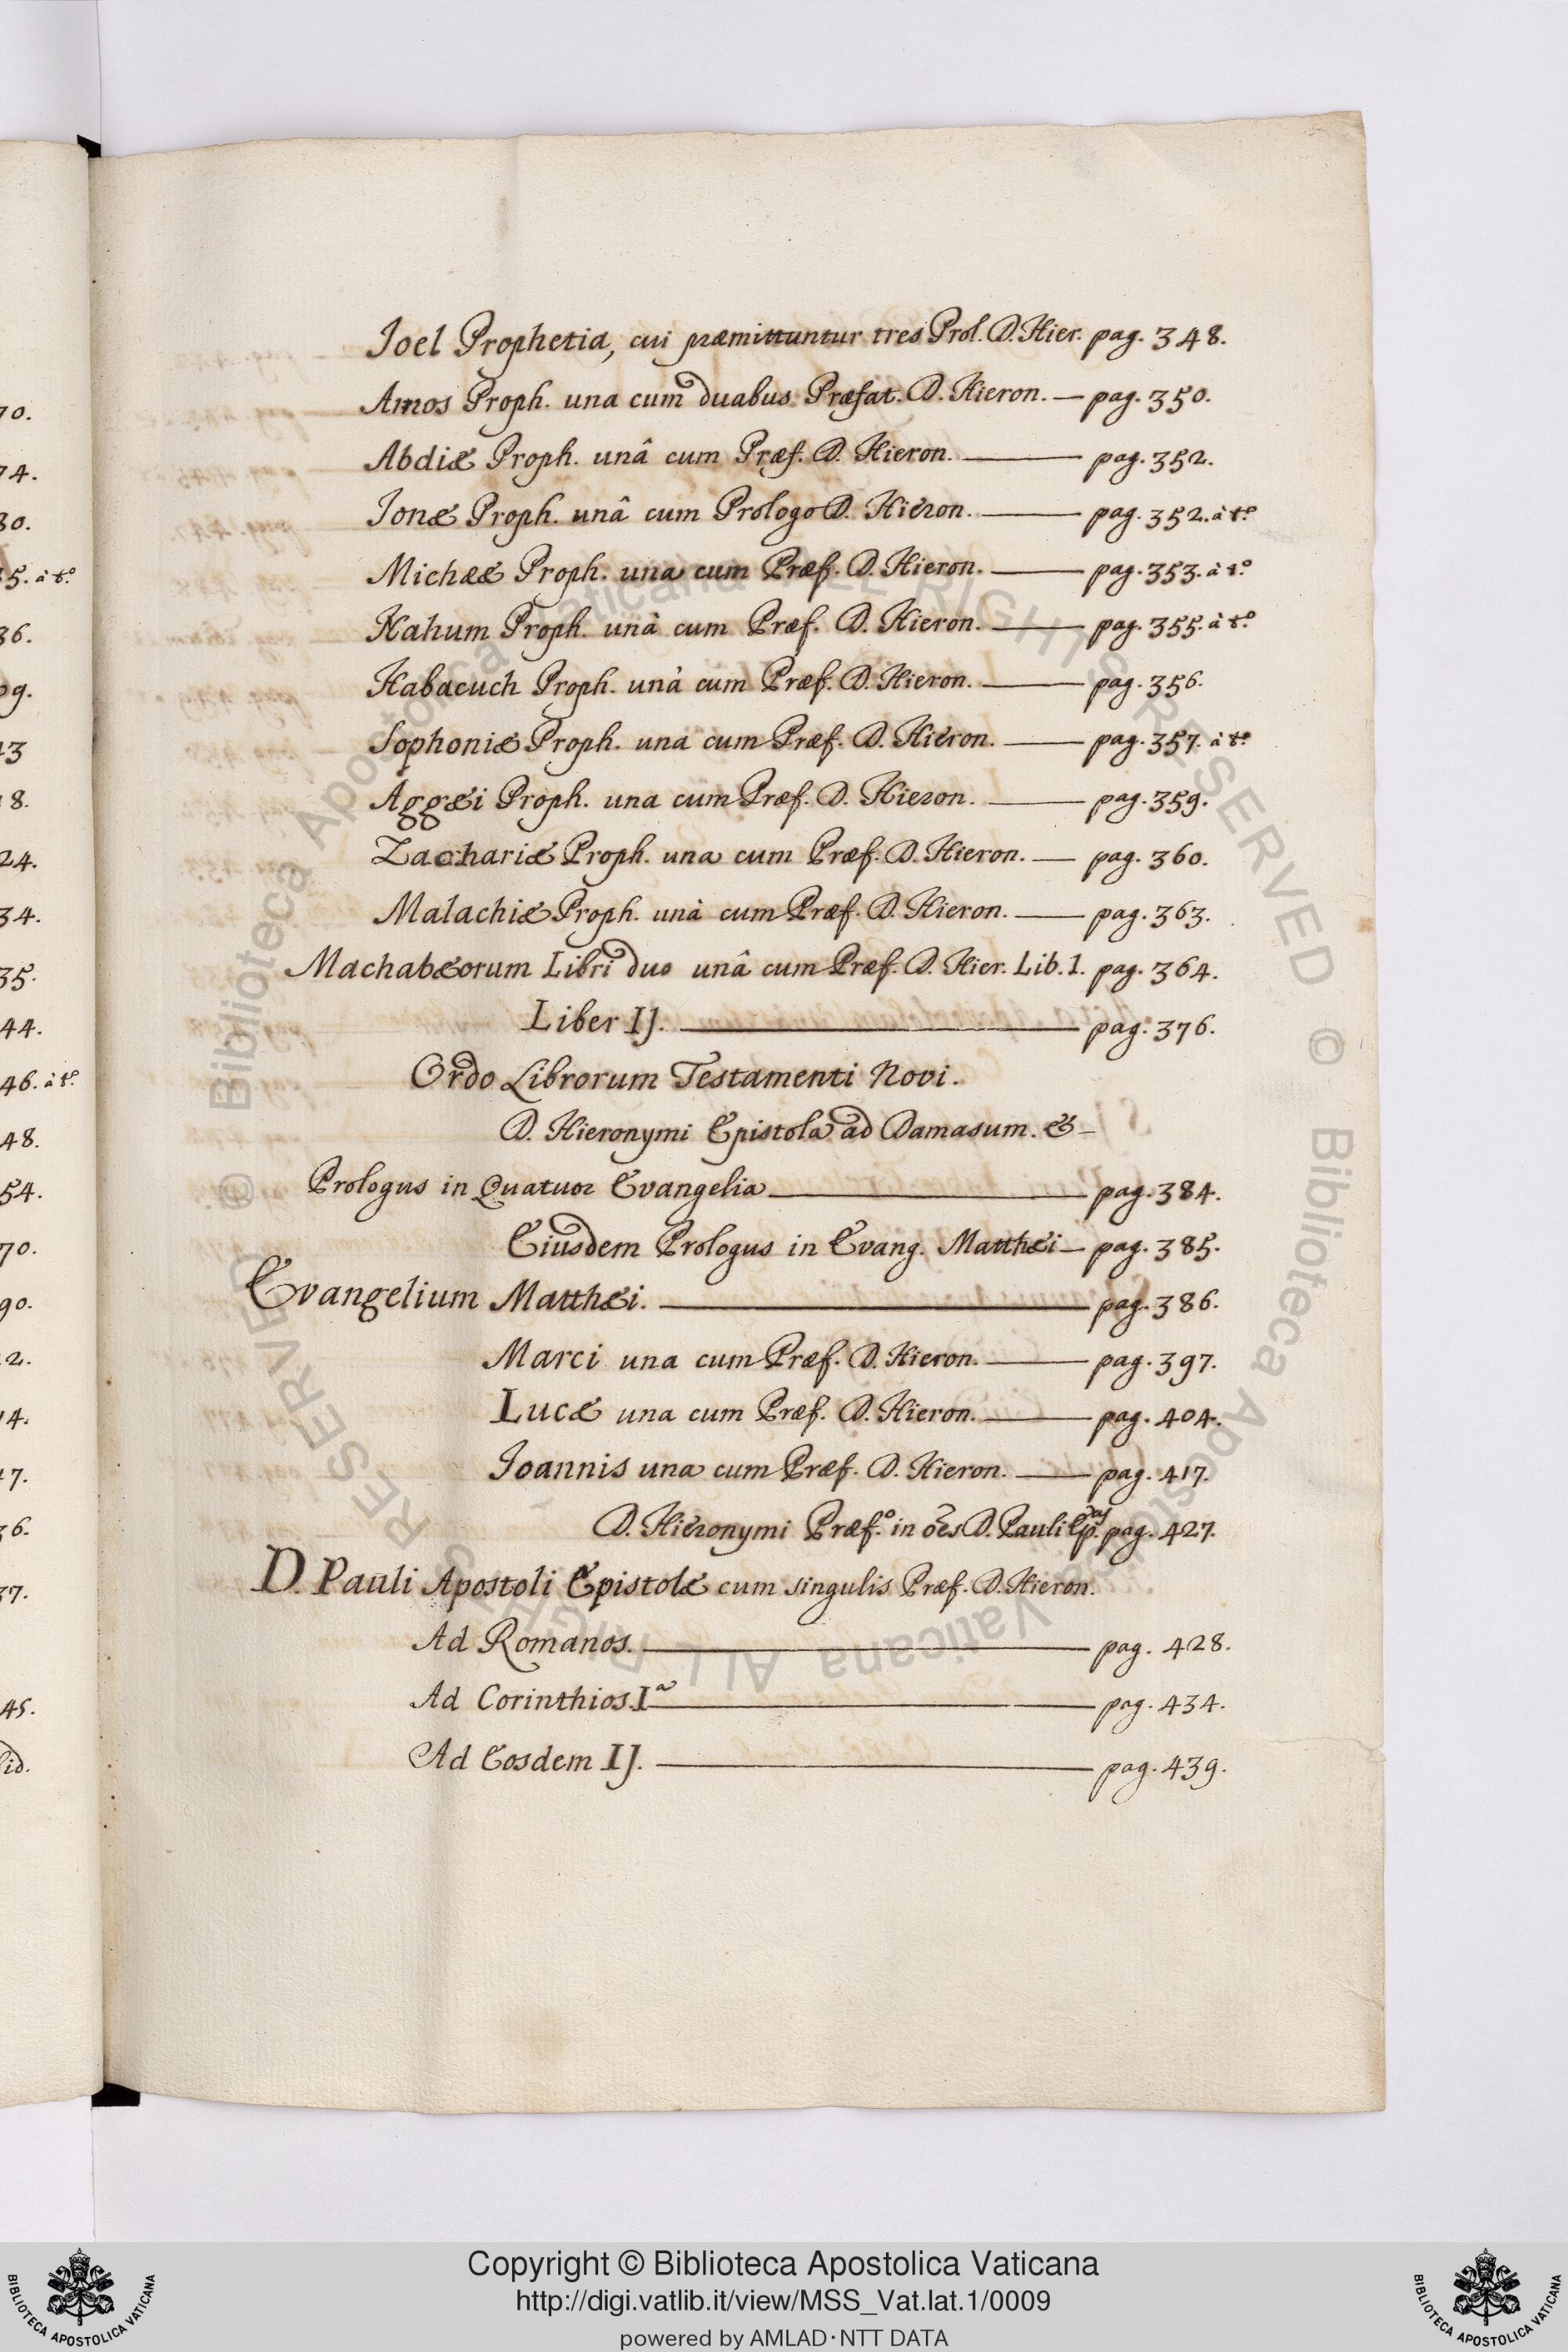 Joel Prophetia, cui præmittuntur tres Prol. D. Hier. pag. 348.
Amos Proph. una cum duabus Præfat. D. Hieron. — pag. 350.
Abdiæ Proph. unâ cum Præf. D. Hieron. — pag. 352.
Ionæ Proph. unâ cum Prologo D. Hieron. — pag. 352. à t.º
Michææ Proph. una cum Præf. D. Hieron. — pag. 353. à t.º
Nahum Proph. unà cum Præf. D. Hieron. — pag. 355. à t.º
Habacuch Proph. unà cum Præf. D. Hieron. — pag. 356.
Sophoniæ Proph. una cum Præf. D. Hieron. — pag. 357. à t.º
Aggæi Proph. una cum Præf. D. Hieron. — pag. 359.
Zachariæ Proph. una cum Præf. D. Hieron. — pag. 360.
Malachiæ Proph. unà cum Præf. D. Hieron. — pag. 363.
Machabæorum Libri duo unâ cum Præf. D. Hier. Lib. 1. pag. 364.
Liber IJ. — pag. 376.
Ordo Librorum Testamenti Novi.
D. Hieronymi Epistola ad Damasum. & —
Prologus in Quatuor Evangelia — pag. 384.
Eiusdem Prologus in Evang. Matthæi — pag. 385.
Evangelium Matthæi. — pag. 386.
Marci una cum Præf. D. Hieron. — pag. 397.
Lucæ una cum Præf. D. Hieron. — pag. 404.
Joannis una cum Præf. D. Hieron. — pag. 417.
D. Hieronymi Præf.º in ões D. Pauli Ep. pag. 427.
D. Pauli Apostoli Epistolæ cum singulis Præf. D. Hieron.
Ad Romanos. — pag. 428.
Ad Corinthios. Iª — pag. 434.
Ad Eosdem IJ. — pag. 439.
70.
74.
30.
5. à t.º
36.
09.
13
18.
24.
34.
35.
44.
46. à t.º
48.
54.
70.
90.
2.
14.
17.
36.
37.
45.
ID.
© Biblioteca Apostolica Vaticana ALL RIGHTS RESERVED © Biblioteca Apostolica Vaticana ALL RIGHTS RESERVED
Copyright © Biblioteca Apostolica Vaticana
http://digi.vatlib.it/view/MSS_Vat.lat.1/0009
powered by AMLAD·NTT DATA
BIBLIOTECA APOSTOLICA VATICANA
BIBLIOTECA APOSTOLICA VATICANA